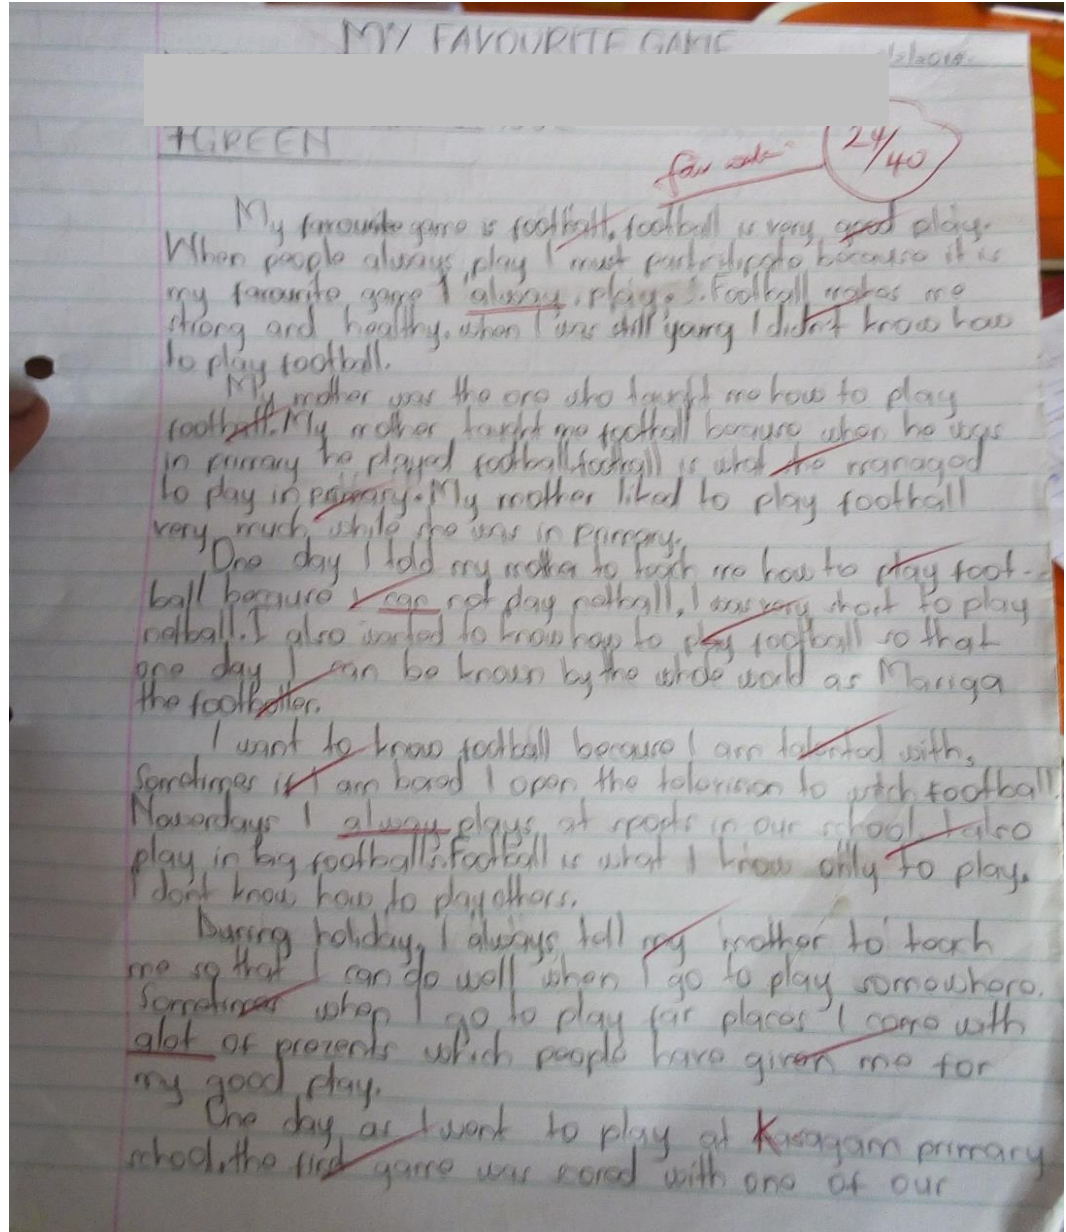 MY FAVOURITE GAME
/2/2019.
7GREEN
24/40
My favourite game is football, football is very good play.
When people always play I must participate because it is
my favourite game I always play. Football makes me
strong and healthy. when I was still young I didn't know how
to play football.
My mother was the one who taught me how to play
football. My mother taught me football because when he was
in primary he played football. football is what she managed
to play in primary. My mother liked to play football
very much while she was in primary.
One day I told my mother to teach me how to play foot-
ball because I can not play netball, I was very short to play
netball. I also wanted to know how to play football so that
one day I can be known by the whole world as Mariga
the footballer.
I want to know football because I am talented with,
Sometimes if I am bored I open the television to watch football.
Nowerdays I alway plays at sports in our school. I also
play in big football's. Football is what I know only to play.
I don't know how to play others.
During holiday, I always tell my mother to teach
me so that I can do well when I go to play somewhere.
Sometimes when I go to play far places I come with
alot of prezents which people have given me for
my good play.
One day as I went to play at Kasagam primary
school, the first game was scored with one of our